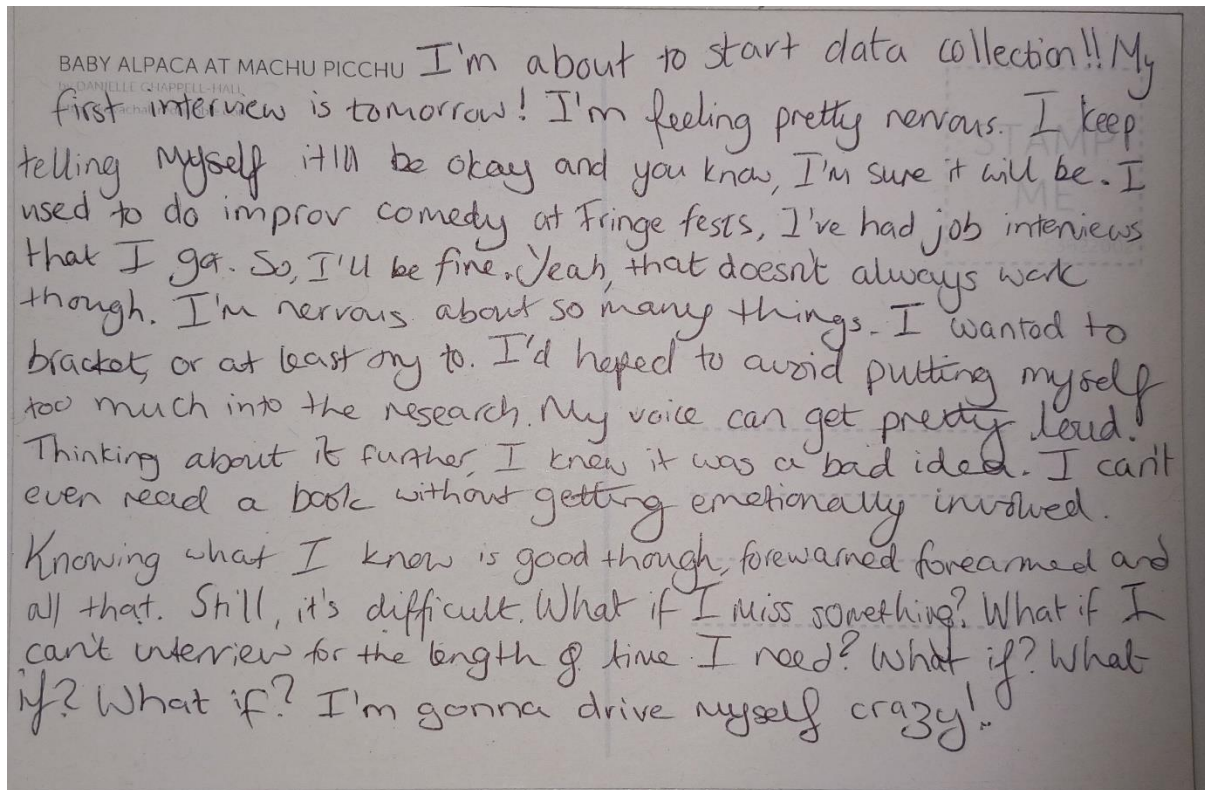 BABY ALPACA AT MACHU PICCHU I'm about to start data collection!! My
by DANIELLE CHAPPELL-HALL
first interview is tomorrow! I'm feeling pretty nervous. I keep
STAMP
telling myself it'll be okay and you know, I'm sure it will be. I
ME
used to do improv comedy at Fringe fests, I've had job interviews
that I got. So, I'll be fine. Yeah, that doesn't always work
though. I'm nervous about so many things. I wanted to
bracket, or at least try to. I'd hoped to avoid putting myself
too much into the research. My voice can get pretty loud.
Thinking about it further, I knew it was a bad idea. I can't
even read a book without getting emotionally involved.
Knowing what I know is good though, forewarned forearmed and
all that. Still, it's difficult. What if I miss something? What if I
can't interview for the length of time I need? What if? What
if? What if? I'm gonna drive myself crazy!!